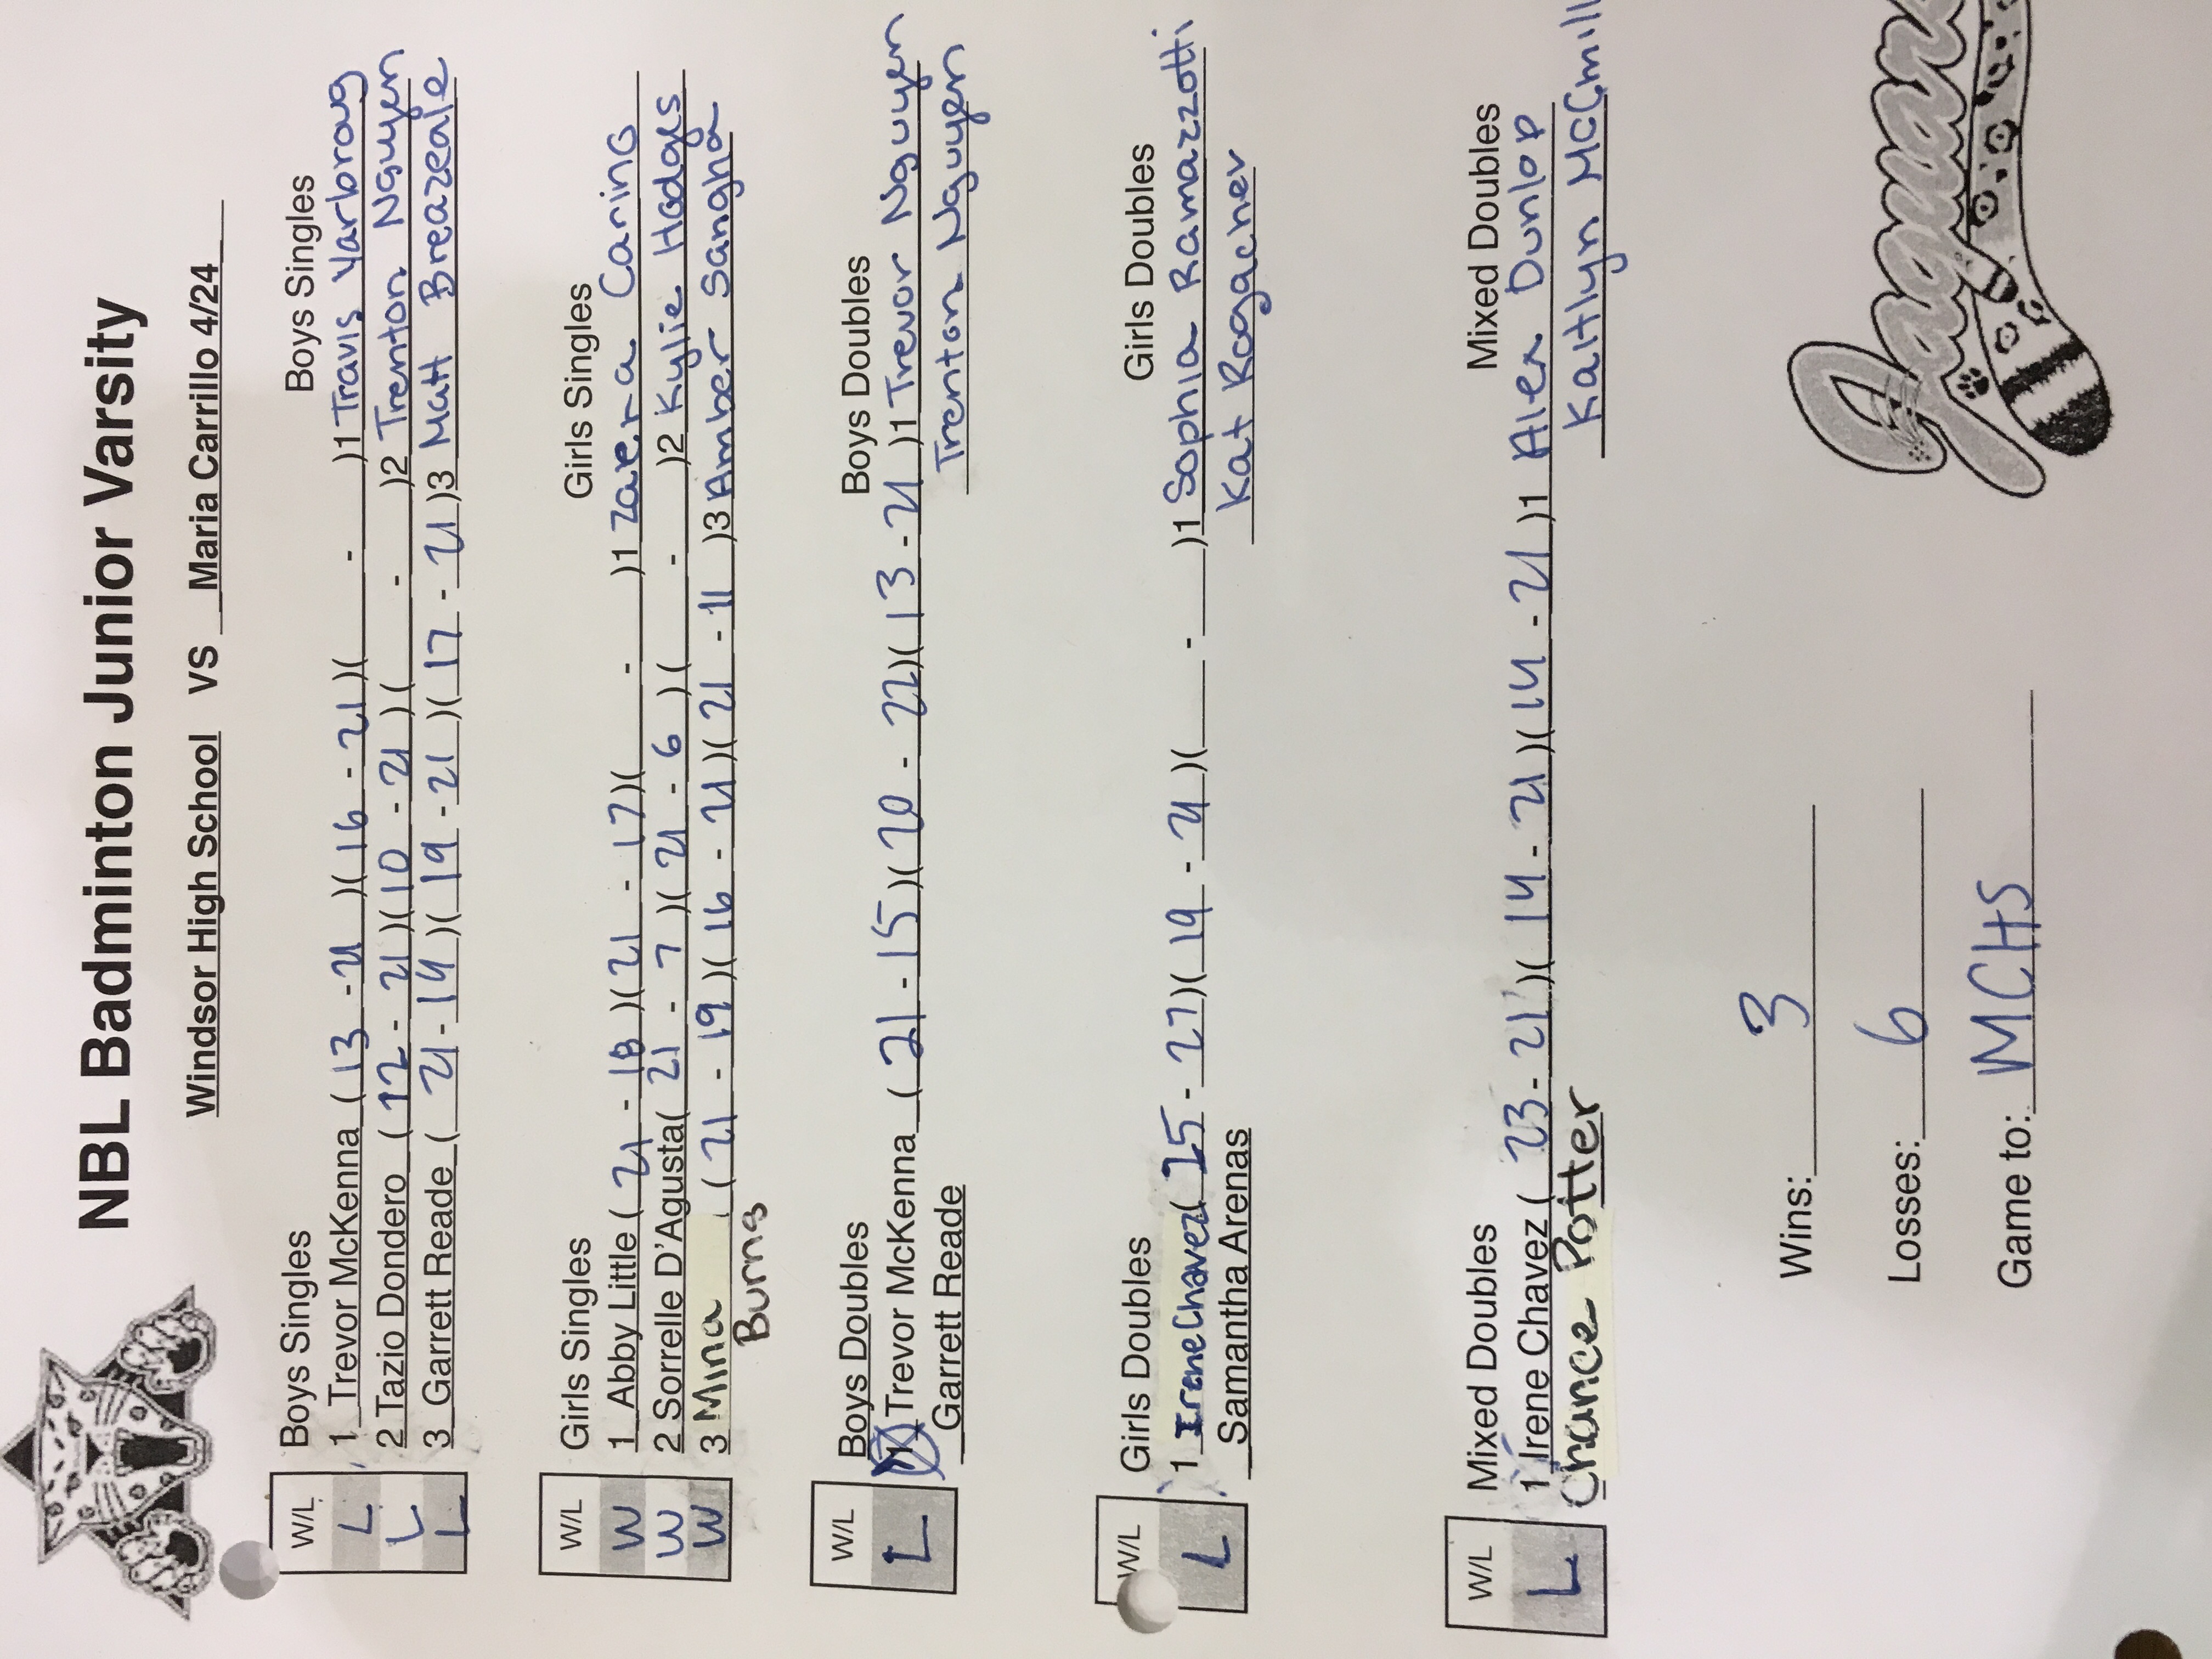 NBL Badminton Junior Varsity
Windsor High School VS Maria Carrillo 4/24
W/L Boys Singles Boys Singles
L 1 Trevor McKenna (13 - 21)(16 - 21)( - )1 Travis Yarbroug
L 2 Tazio Dondero (12 - 21)(10 - 21)( - )2 Trenton Nguyen
L 3 Garrett Reade (21 - 14)(19 - 21)(17 - 21)3 Matt Breazeale
W/L Girls Singles Girls Singles
W 1 Abby Little (21 - 18)(21 - 17)( - )1 Zaera Carino
W 2 Sorrelle D'Agusta(21 - 7)(21 - 6)( - )2 Kylie Hodges
W 3 Mina (21 - 19)(16 - 21)(21 - 11)3 Amber Sangha
Burns
W/L Boys Doubles Boys Doubles
L 1 Trevor McKenna (21 - 15)(20 - 22)(13 - 21)1 Trevor Nguyen
Garrett Reade Trenton Nguyen
W/L Girls Doubles Girls Doubles
L 1 Irene Chavez(25 - 27)(19 - 21)( - )1 Sophia Ramazzotti
Samantha Arenas Kat Rogachev
W/L Mixed Doubles Mixed Doubles
L 1 Irene Chavez (23 - 21)(14 - 21)(14 - 21)1 Alex Dunlop
Chance Potter Kaitlyn McCmill
Wins: 3
Losses: 6
Game to: MCHS
Jaguars